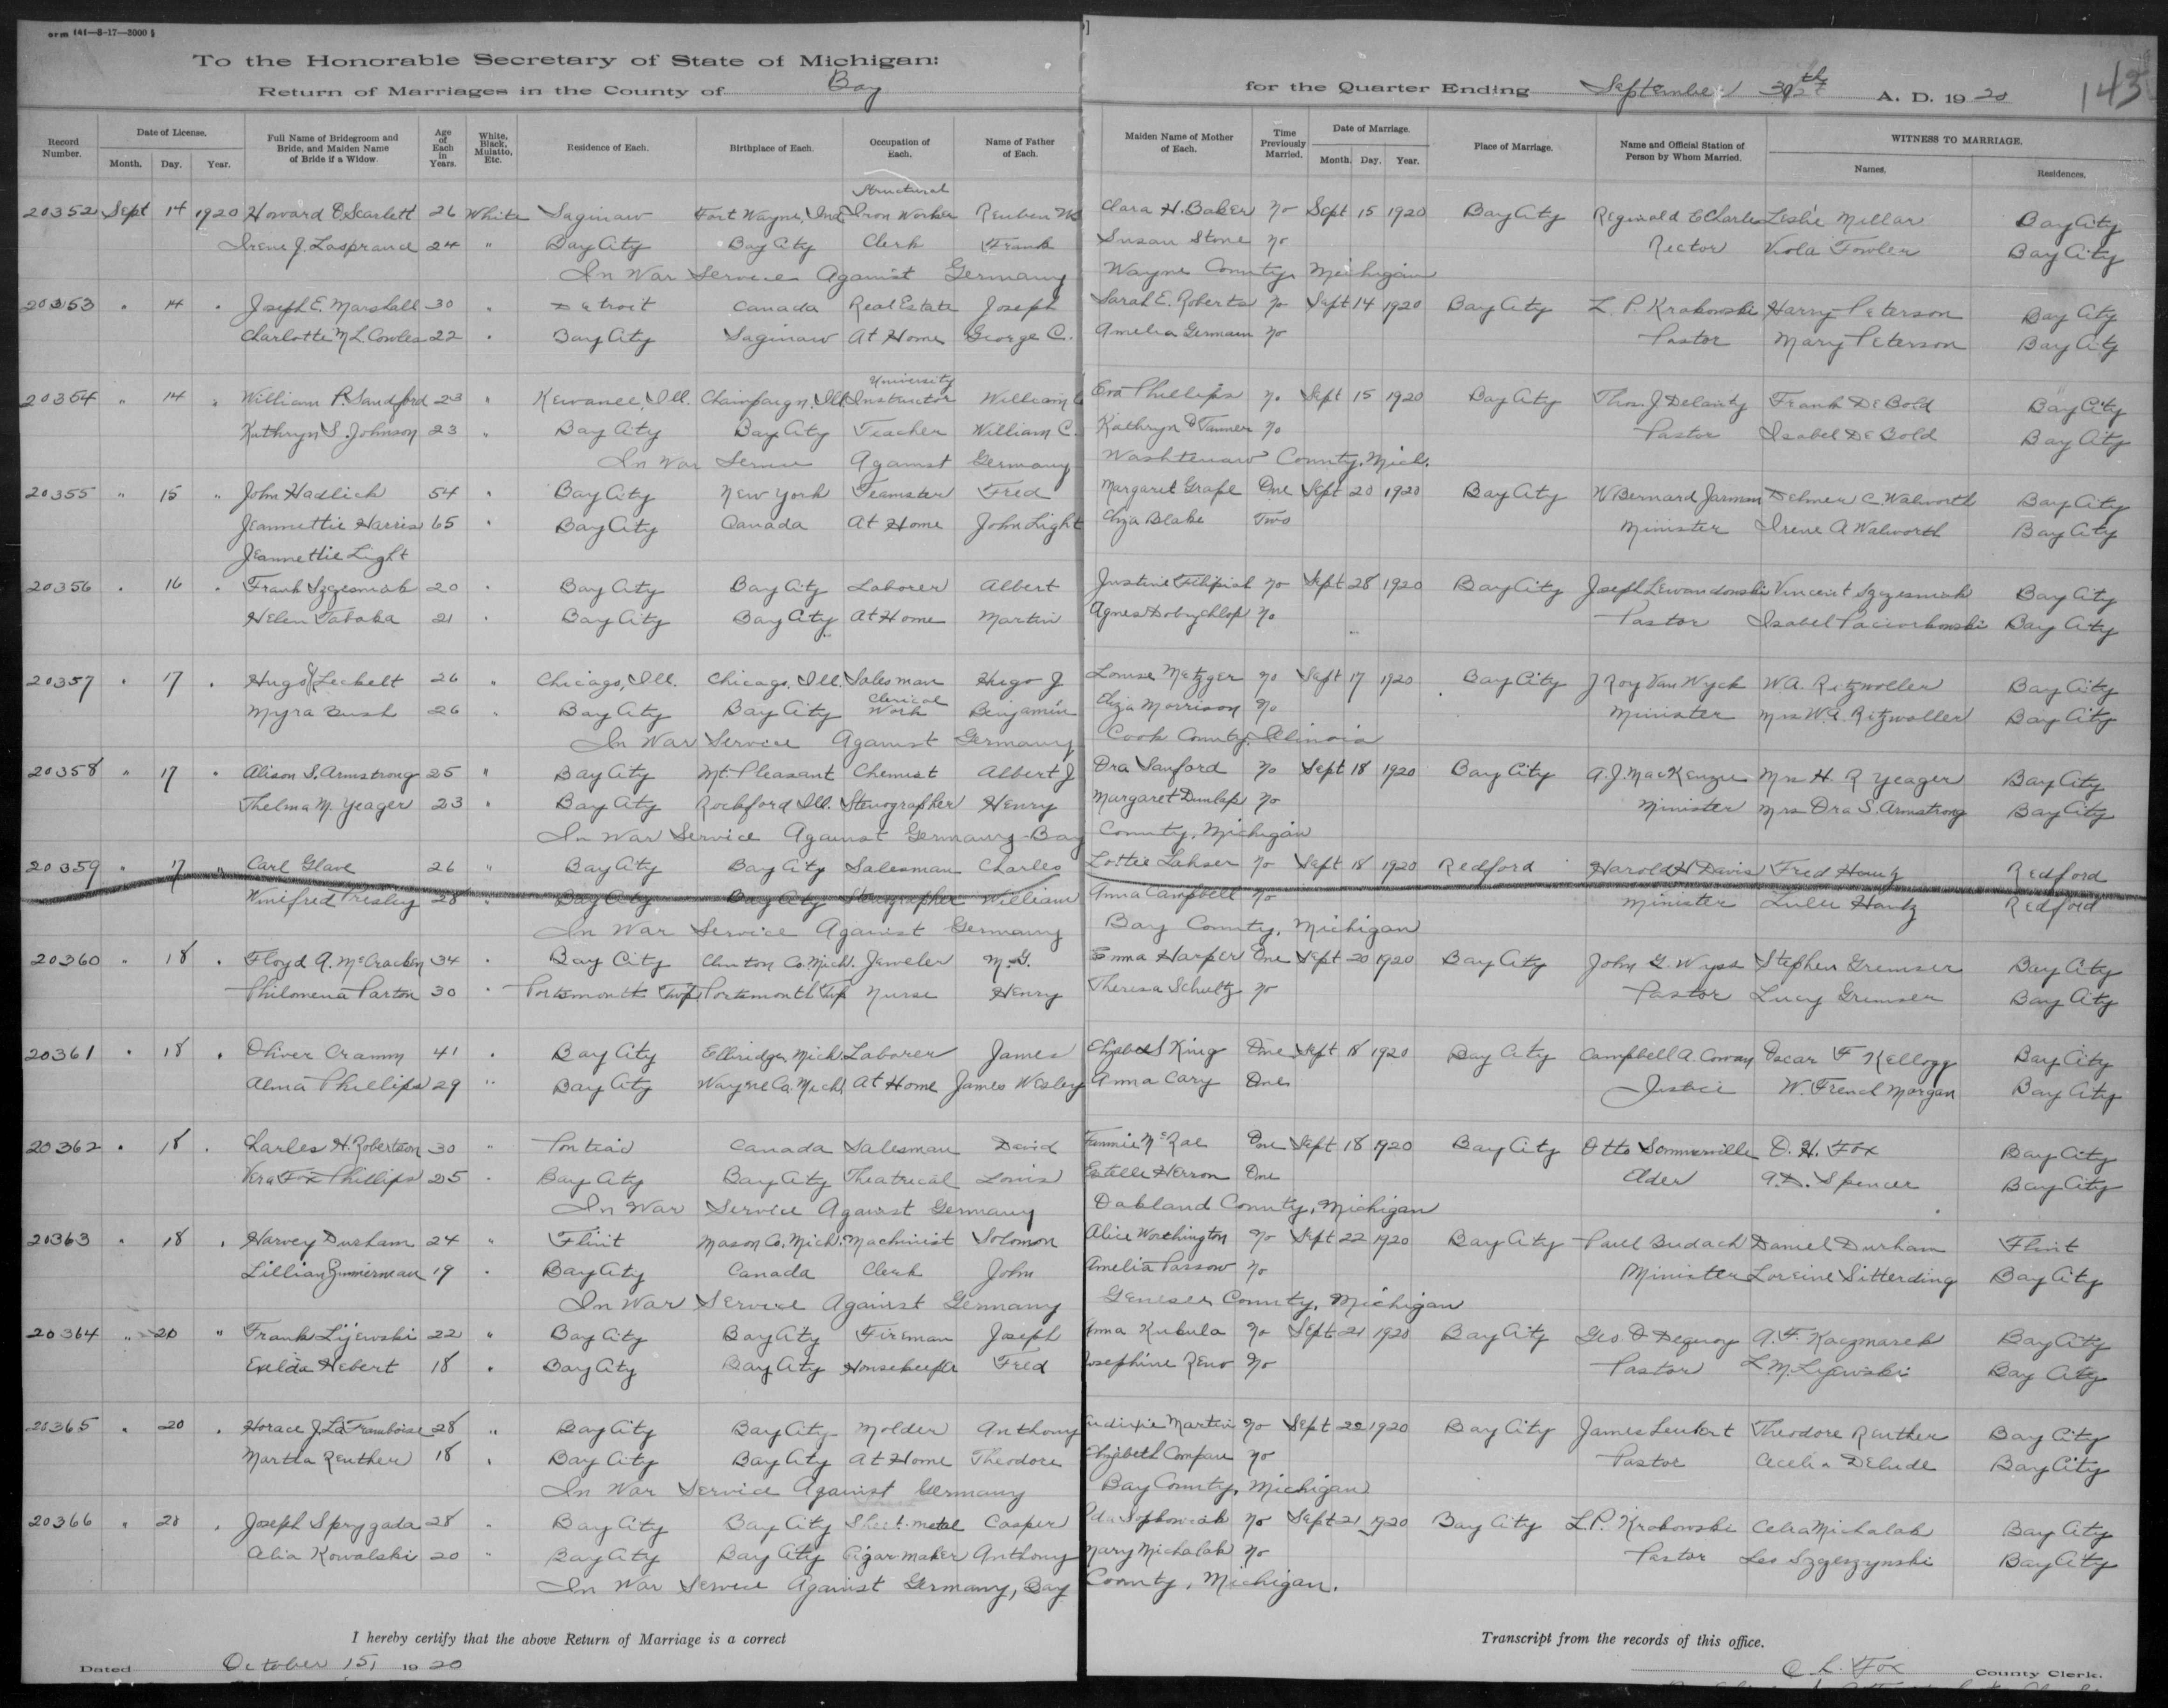 To the Honorable Secretary of State of Michigan:
Return of Marriages in the County of Bay for the Quarter Ending September 30th A. D. 1920
143
Record Number. Date of License. Month. Day. Year. Full Name of Bridegroom and Bride, and Maiden Name of Bride if a Widow. Age of Each in Years. White, Black, Mulatto, Etc. Residence of Each. Birthplace of Each. Occupation of Each. Name of Father of Each. Maiden Name of Mother of Each. Time Previously Married. Date of Marriage. Month. Day. Year. Place of Marriage. Name and Official Station of Person by Whom Married. WITNESS TO MARRIAGE. Names. Residences.
Structural
20352 Sept 14 1920 Howard E Scarlett 26 White Saginaw Fort Wayne, Ind Iron Worker Reuben Clara H. Baker No Sept 15 1920 Bay City Reginald E Charles Leslie Millar Bay City
Irene J. Lasprance 24 " Bay City Bay City Clerk Frank Susan Stone No Rector Viola Fowler Bay City
In War Service Against Germany Wayne County, Michigan
20353 " 14 " Joseph E. Marshall 30 " Detroit Canada Real Estate Joseph Sarah E. Roberts No Sept 14 1920 Bay City L. P. Krakowski Harry Peterson Bay City
Charlotte M L Cowles 22 " Bay City Saginaw At Home George C. Amelia Germain No Pastor Mary Peterson Bay City
University
20354 " 14 " William P. Sandford 23 " Kewanee, Ill. Champaign, Ill Instructor William Eva Phillips No Sept 15 1920 Bay City Thos. J Delanty Frank DeBold Bay City
Kathryn S. Johnson 23 " Bay City Bay City Teacher William C. Kathryn D Tanner No Pastor Isabel DeBold Bay City
In War Service Against Germany Washtenaw County, Mich.
20355 " 15 " John Hadlick 54 " Bay City New York Teamster Fred Margaret Grape One Sept 20 1920 Bay City W Bernard Jarman Delmer C. Walworth Bay City
Jeannettie Harris 65 " Bay City Canada At Home John Light Eliza Blake Two Minister Irene A Walworth Bay City
Jeannettie Light
20356 " 16 " Frank Szczesniak 20 " Bay City Bay City Laborer Albert Justine Filipiak No Sept 28 1920 Bay City Joseph Lewandowski Vincent Szczesniak Bay City
Helen Tabaka 21 " Bay City Bay City At Home Martin Agnes No Pastor Isabel Paciorkowski Bay City
20357 " 17 " Hugo J Leckelt 26 " Chicago, Ill. Chicago, Ill. Salesman Hugo J Louise Metzger No Sept 17 1920 Bay City J Roy Van Wyck W.A. Ritzwoller Bay City
Myra Bush 26 " Bay City Bay City Clerical Work Benjamin Eliza Morrison No Minister Mrs W.A. Ritzwoller Bay City
In War Service Against Germany Cook County, Illinois
20358 " 17 " Alison S. Armstrong 25 " Bay City Mt. Pleasant Chemist Albert J Ora Sanford No Sept 18 1920 Bay City A. J. MacKenzie Mrs H. R Yeager Bay City
Thelma M. Yeager 23 " Bay City Rockford Ill. Stenographer Henry Margaret Dunlap No Minister Mrs Ora S. Armstrong Bay City
In War Service Against Germany - Bay County, Michigan
20359 " 17 " Carl Glave 26 " Bay City Bay City Salesman Charles Lottie Lehser No Sept 18 1920 Redford Harold H Davis Fred Hantz Redford
Winifred Presley 28 " Bay City Bay City Stenographer William Anna Campbell No Minister Lulu Hantz Redford
In War Service Against Germany Bay County, Michigan
20360 " 18 " Floyd A. McCracken 34 " Bay City Clinton Co. Mich. Jeweler M. G. Emma Harper One Sept 20 1920 Bay City John G. Wyss Stephen Gremser Bay City
Philomena Parton 30 " Portsmouth Twp Portsmouth Twp Nurse Henry Theresa Schultz No Pastor Lucy Gremser Bay City
20361 " 18 " Oliver Cramm 41 " Bay City Elbridge, Mich. Laborer James Elizabeth S King One Sept 18 1920 Bay City Campbell A. Conway Oscar F Kellogg Bay City
Alma Phillips 29 " Bay City Wayne Co. Mich. At Home James Wesley Anna Cary One Justice W. French Morgan Bay City
20362 " 18 " Charles H. Robertson 30 " Pontiac Canada Salesman David Fannie McRae One Sept 18 1920 Bay City Otto Sommerville D. H. Fox Bay City
Vera Fox Phillips 25 " Bay City Bay City Theatrical Louis Estelle Herron One Elder A. D. Spencer Bay City
In War Service Against Germany Oakland County, Michigan
20363 " 18 " Harvey Durham 24 " Flint Mason Co. Mich. Machinist Solomon Alice Worthington No Sept 22 1920 Bay City Paul Budach Daniel Durham Flint
Lillian Zimmerman 19 " Bay City Canada Clerk John Amelia Passow No Minister Loreine Sitterding Bay City
In War Service Against Germany Genesee County, Michigan
20364 " 20 " Frank Lijewski 22 " Bay City Bay City Fireman Joseph Anna Kubula No Sept 21 1920 Bay City Geo. D Dequoy A. F. Kaczmarek Bay City
Exilda Hebert 18 " Bay City Bay City Housekeeper Fred Josephine Reno No Pastor L. M. Lijewski Bay City
20365 " 20 " Horace J. LaFramboise 28 " Bay City Bay City Molder Anthony Martin No Sept 22 1920 Bay City James Leukert Theodore Reuther Bay City
Martha Reuther 18 " Bay City Bay City At Home Theodore Elizabeth Compau No Pastor Acelia Delude Bay City
In War Service Against Germany Bay County, Michigan
20366 " 20 " Joseph Sprygada 28 " Bay City Bay City Sheet-metal Casper No Sept 21 1920 Bay City L.P. Krakowski Celia Michalak Bay City
Celia Kowalski 20 " Bay City Bay City Cigar-maker Anthony Mary Michalak No Pastor Leo Szczeszynski Bay City
In War Service Against Germany, Bay County, Michigan.
I hereby certify that the above Return of Marriage is a correct Transcript from the records of this office.
Dated October 15, 1920 C. L. Fox County Clerk.